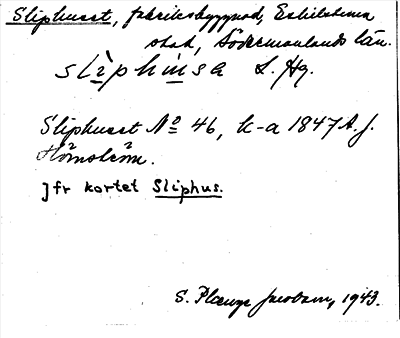 Sliphuset, fabriksbyggnad, Eskilstuna
stad, Södermanlands län.
slìphùsə L. Hg.
Sliphuset No 46, k-a 1847 A. J.
Hörnström.
Jfr kortet Sliphus.
S. Plænge Jacobson, 1943.